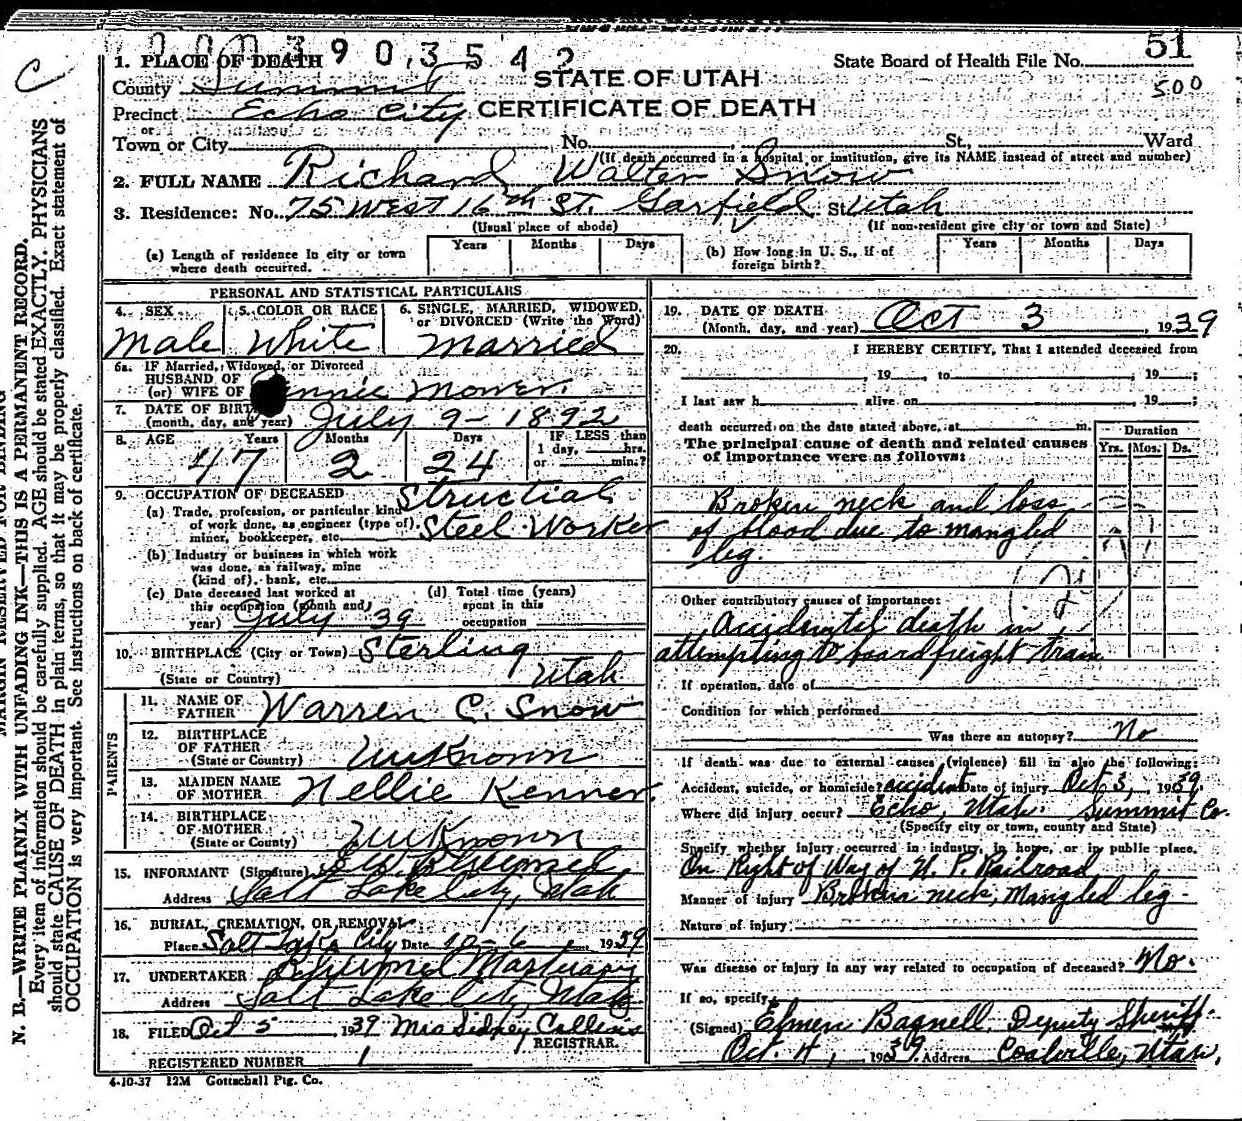 0003903542
51
1. PLACE OF DEATH
State Board of Health File No.
500
C
County Summit
STATE OF UTAH
Precinct Echo City
CERTIFICATE OF DEATH
or
Town or City No. St., Ward
(If death occurred in a hospital or institution, give its NAME instead of street and number)
2. FULL NAME Richard Walter Snow
3. Residence: No. 75 West 16th St. Garfield St. Utah
(Usual place of abode) (If non-resident give city or town and State)
(a) Length of residence in city or town where death occurred. Years Months Days
(b) How long in U. S., if of foreign birth? Years Months Days
MARGIN RESERVED FOR BINDING
N. B.—WRITE PLAINLY WITH UNFADING INK—THIS IS A PERMANENT RECORD.
Every item of information should be carefully supplied. AGE should be stated EXACTLY. PHYSICIANS
should state CAUSE OF DEATH in plain terms, so that it may be properly classified. Exact statement of
OCCUPATION is very important. See instructions on back of certificate.
PERSONAL AND STATISTICAL PARTICULARS
4. SEX 5. COLOR OR RACE 6. SINGLE, MARRIED, WIDOWED,
or DIVORCED (Write the Word)
Male White Married
6a. IF Married, Widowed, or Divorced
HUSBAND OF
(or) WIFE OF nnie Mower.
7. DATE OF BIRTH
(month, day, and year) July 9- 1892
8. AGE Years Months Days IF LESS than
1 day, hrs.
or min.?
47 2 24
9. OCCUPATION OF DECEASED
(a) Trade, profession, or particular kind
of work done, as engineer (type of),
miner, bookkeeper, etc.
Structial
Steel Worker
(b) Industry or business in which work
was done, as railway, mine
(kind of), bank, etc.
(c) Date deceased last worked at
this occupation (month and
year) July 39
(d) Total time (years)
spent in this
occupation
10. BIRTHPLACE (City or Town) Sterling
(State or Country) Utah
PARENTS
11. NAME OF
FATHER Warren C. Snow
12. BIRTHPLACE
OF FATHER
(State or Country) Unknown
13. MAIDEN NAME
OF MOTHER Nellie Kenner.
14. BIRTHPLACE
OF MOTHER
(State or Country) Unknown
15. INFORMANT (Signature)
Address Salt Lake City, Utah
16. BURIAL, CREMATION, OR REMOVAL
Place Salt Lake City Date 10-6, 1939
17. UNDERTAKER Mortuary
Address Salt Lake City, Utah
18. FILED Oct 5, 1939 Mrs Sidney Collins
REGISTRAR.
REGISTERED NUMBER 1
4-10-37 12M Gottschall Ptg. Co.
19. DATE OF DEATH
(Month, day, and year) Oct 3, 1939
20. I HEREBY CERTIFY, That I attended deceased from
, 19 , to , 19 ;
I last saw h alive on , 19 ;
death occurred on the date stated above, at m.
The principal cause of death and related causes
of importance were as follows:
Duration
Yrs. Mos. Ds.
Broken neck and loss
of blood due to mangled
leg.
Other contributory causes of importance:
Accidentel death in
attempting to board freight train
If operation, date of
Condition for which performed
Was there an autopsy? No
If death was due to external causes (violence) fill in also the following:
Accident, suicide, or homicide? accident Date of injury Oct 3, 1939.
Where did injury occur? Echo, Utah. Summit Co.
(Specify city or town, county and State)
Specify whether injury occurred in industry, in home, or in public place.
On Right of Way of U. P. Railroad
Manner of injury Broken neck, Mangled leg -
Nature of injury
Was disease or injury in any way related to occupation of deceased? No.
If so, specify
(Signed) Elmer Bagnell. Deputy Sheriff.
Oct. 4, 1939. Address Coalville, Utah.